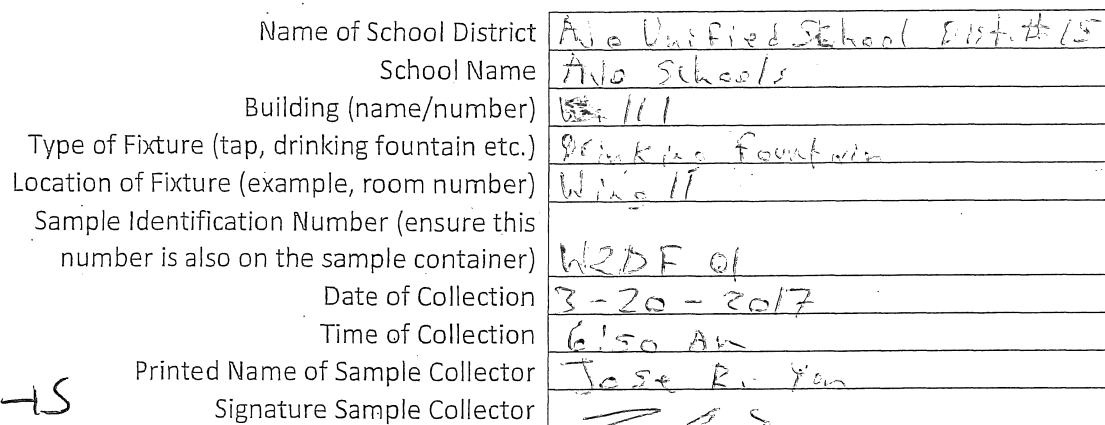 Name of School District Ajo Unified School Dist. #15
School Name Ajo Schools
Building (name/number) 111
Type of Fixture (tap, drinking fountain etc.) Drinking Fountain
Location of Fixture (example, room number) Wing 11
Sample Identification Number (ensure this
number is also on the sample container) W2DF 01
Date of Collection 3-20-2017
Time of Collection 6:50 Am
Printed Name of Sample Collector Jose R. Yan
-15 Signature Sample Collector